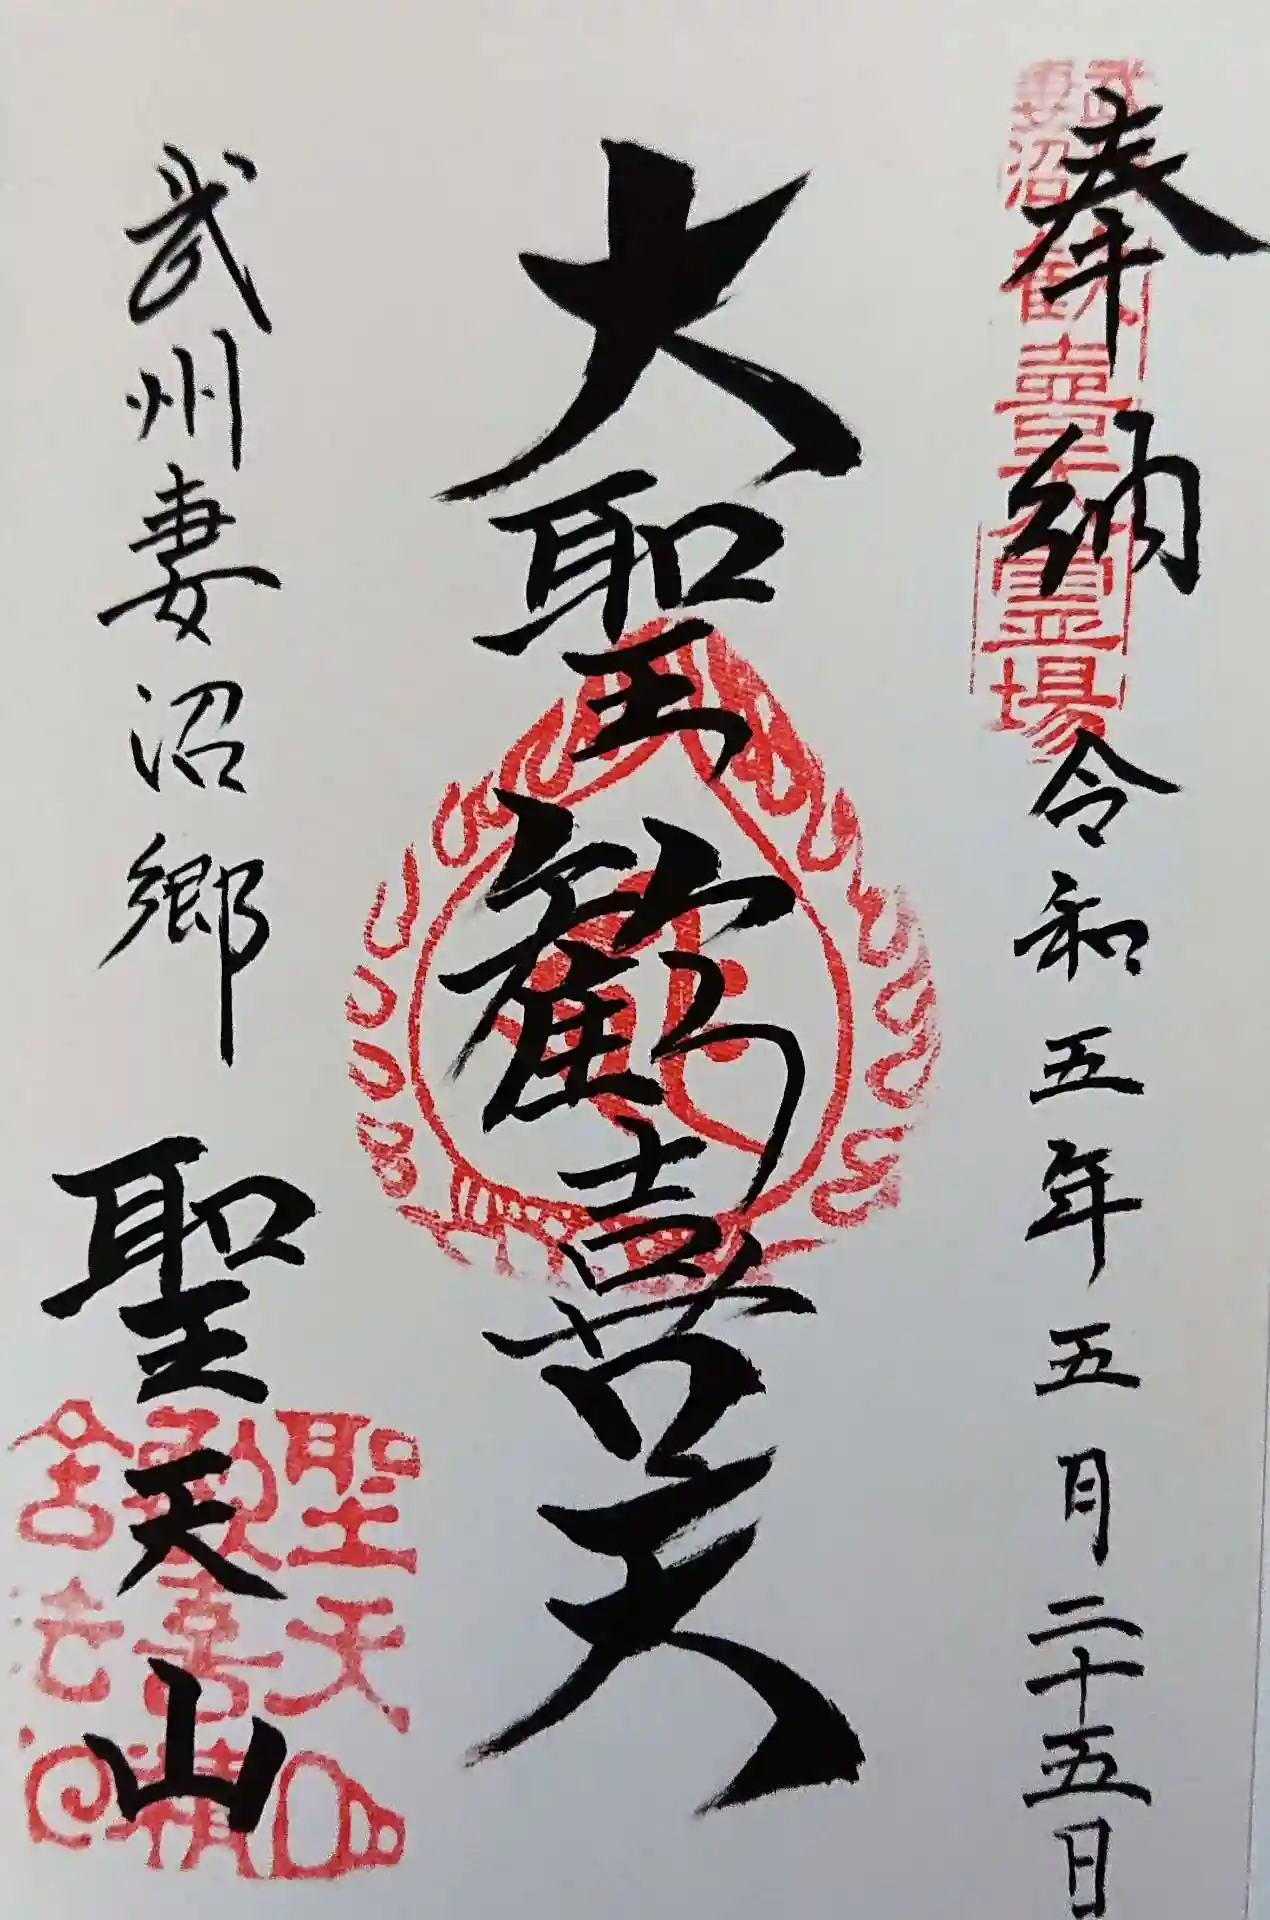 奉納 令和五年五月二十五日
大聖歡喜天
武州妻沼郷 聖天山
妻沼
歓喜天霊場
聖天山
歓喜